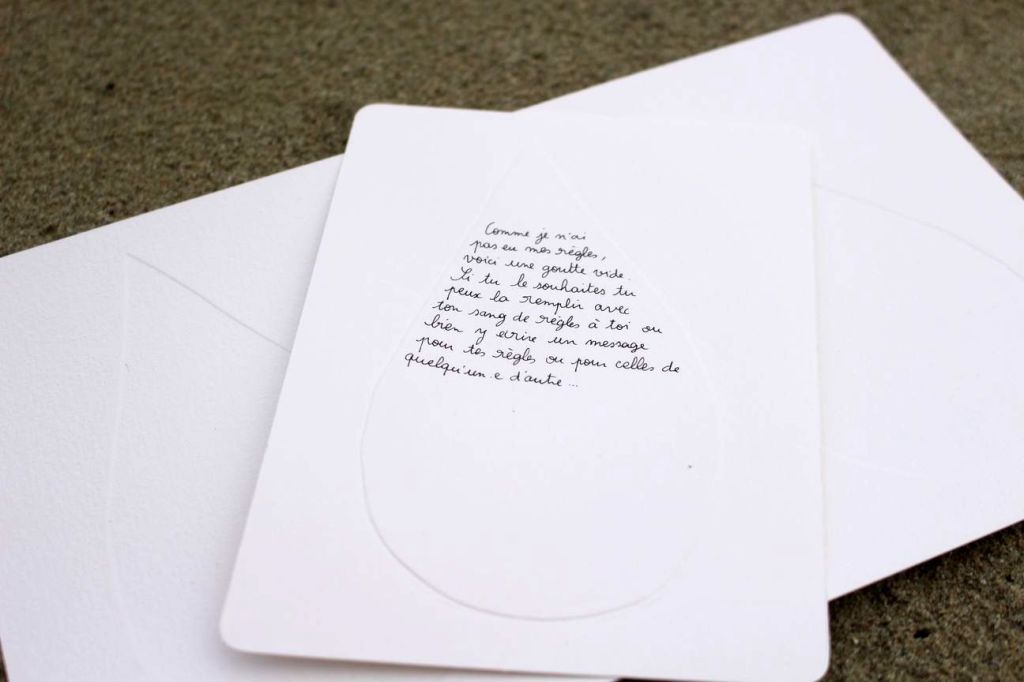 Comme je n'ai
pas eu mes règles,
voici une goutte vide.
Si tu le souhaites tu
peux la remplir avec
ton sang de règles à toi ou
bien y écrire un message
pour tes règles ou pour celles de
quelqu'un.e d'autre...